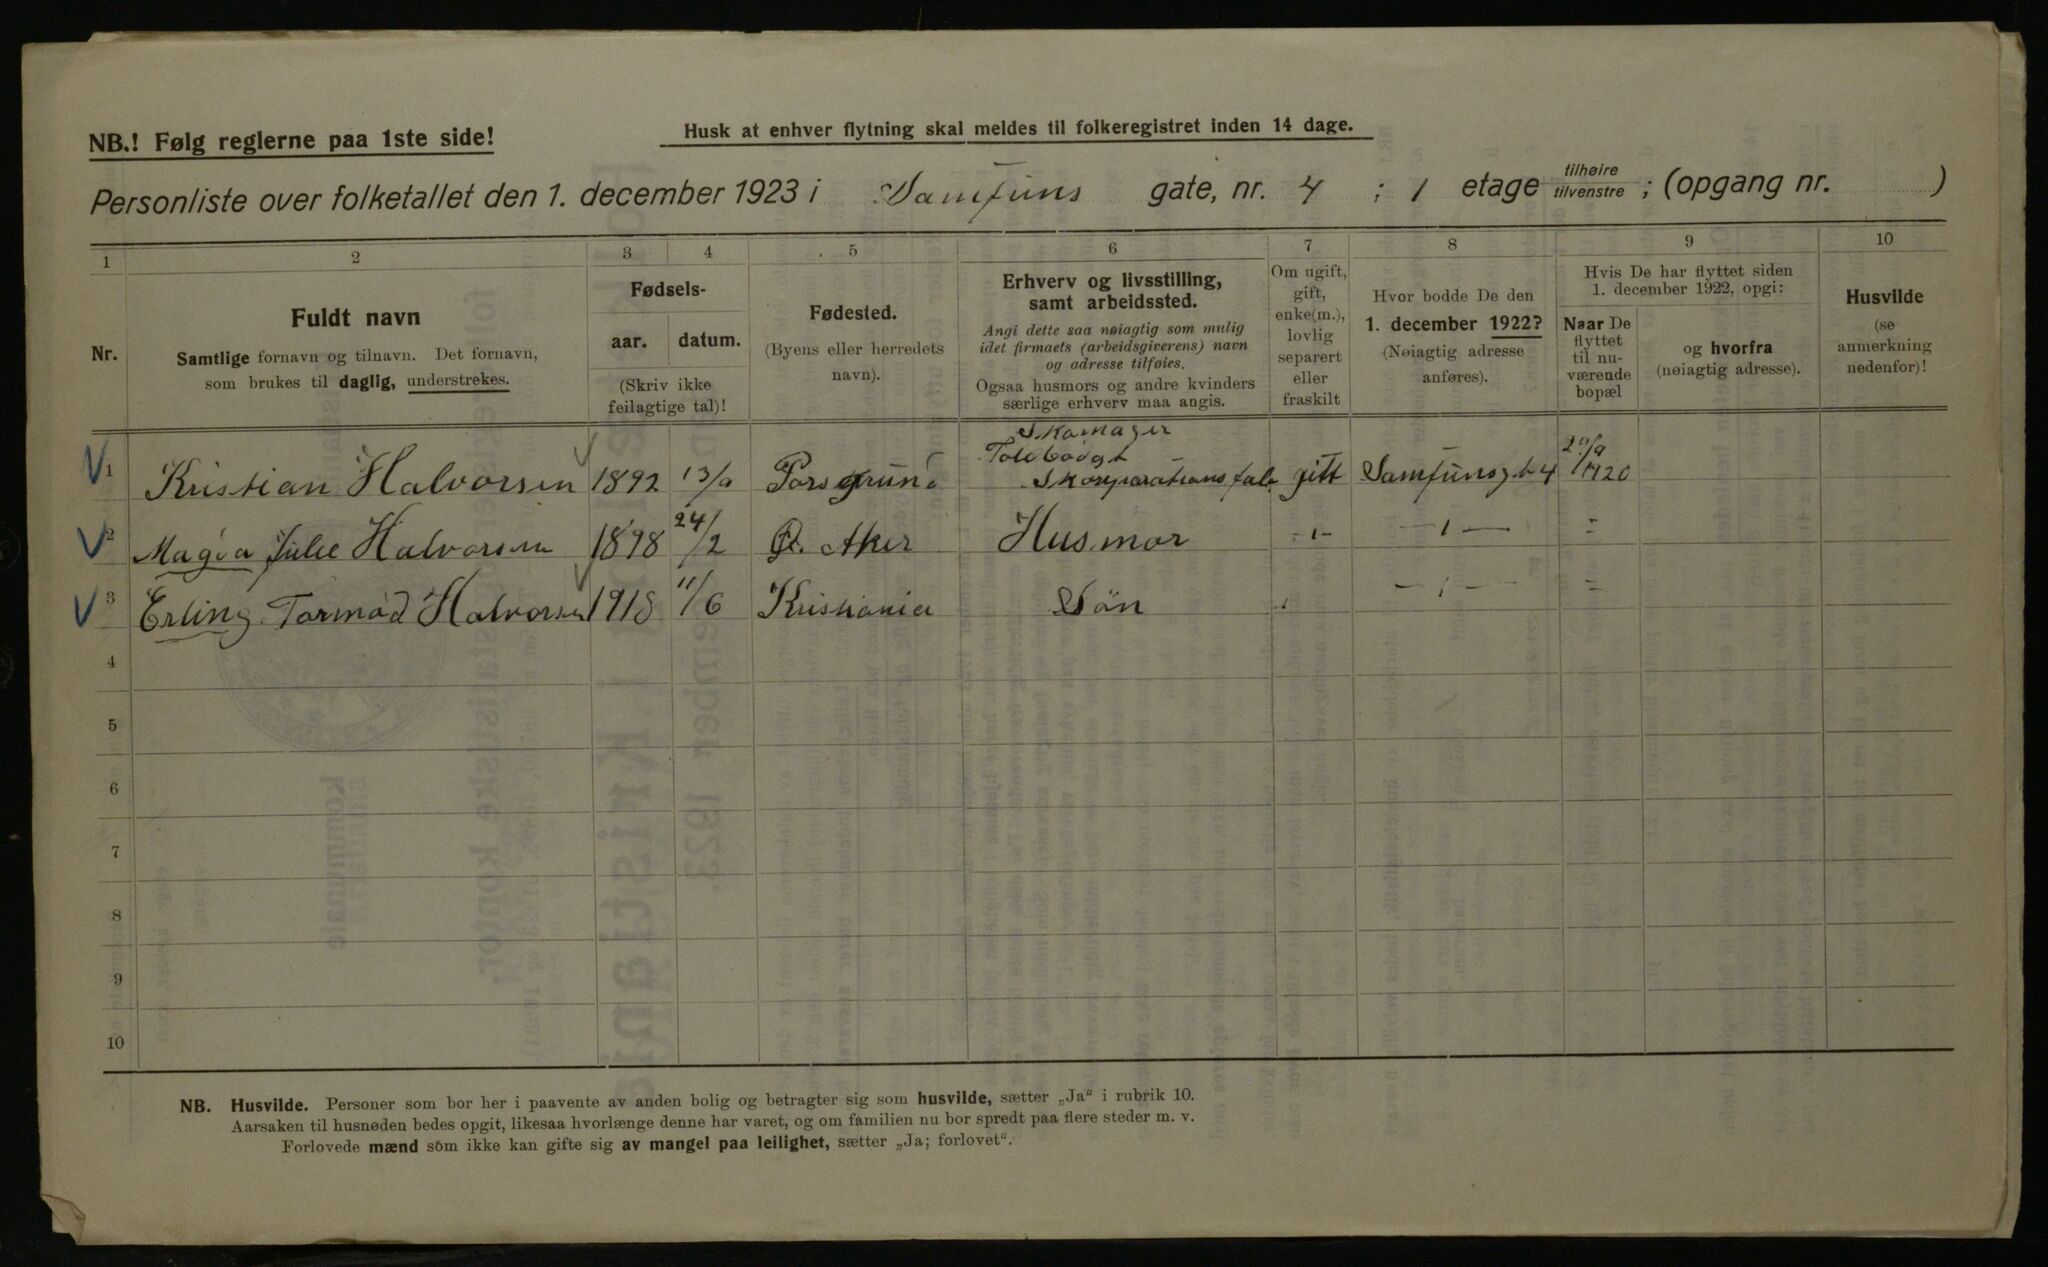 NB.! Følg reglerne paa 1ste side!
Husk at enhver flytning skal meldes til folkeregistret inden 14 dage.
Personliste over folketallet den 1. december 1923 i Samfuns gate, nr. 4 ; 1 etage tilhøire tilvenstre ; (opgang nr. )
1 2 3 4 5 6 7 8 9 10
Nr.
Fuldt navn
Samtlige fornavn og tilnavn. Det fornavn,
som brukes til daglig, understrekes.
Fødsels-
aar. datum.
(Skriv ikke
feilagtige tal)!
Fødested.
(Byens eller herredets
navn).
Erhverv og livsstilling,
samt arbeidssted.
Angi dette saa nøiagtig som mulig
idet firmaets (arbeidsgiverens) navn
og adresse tilføies.
Ogsaa husmors og andre kvinders
særlige erhverv maa angis.
Om ugift,
gift,
enke(m.),
lovlig
separert
eller
fraskilt
Hvor bodde De den
1. december 1922?
(Nøiagtig adresse
anføres).
Hvis De har flyttet siden
1. december 1922, opgi:
Naar De
flyttet
til nu-
værende
bopæl
og hvorfra
(nøiagtig adresse).
Husvilde
(se
anmerkning
nedenfor)!
Skomager
Tolbodgt
1 Kristian Halvorsen 1892 13/9 Porsgrund gift Samfunsgt 4 20/9 1920
2 Magda Julie Halvorsen 1898 24/2 Ø. Aker Husmor -"- -"- =
3 Erling Tormod Halvorsen 1918 11/6 Kristiania Sön -"- =
4
5
6
7
8
9
10
NB. Husvilde. Personer som bor her i paavente av anden bolig og betragter sig som husvilde, sætter „Ja“ i rubrik 10.
Aarsaken til husnøden bedes opgit, likesaa hvorlænge denne har varet, og om familien nu bor spredt paa flere steder m. v.
Forlovede mænd som ikke kan gifte sig av mangel paa leilighet, sætter „Ja; forlovet“.